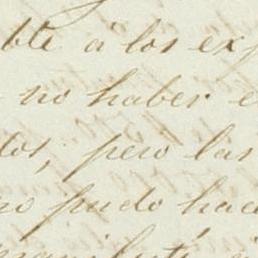 ble á los ex
no haber e
dos, pero las
no pudo hac